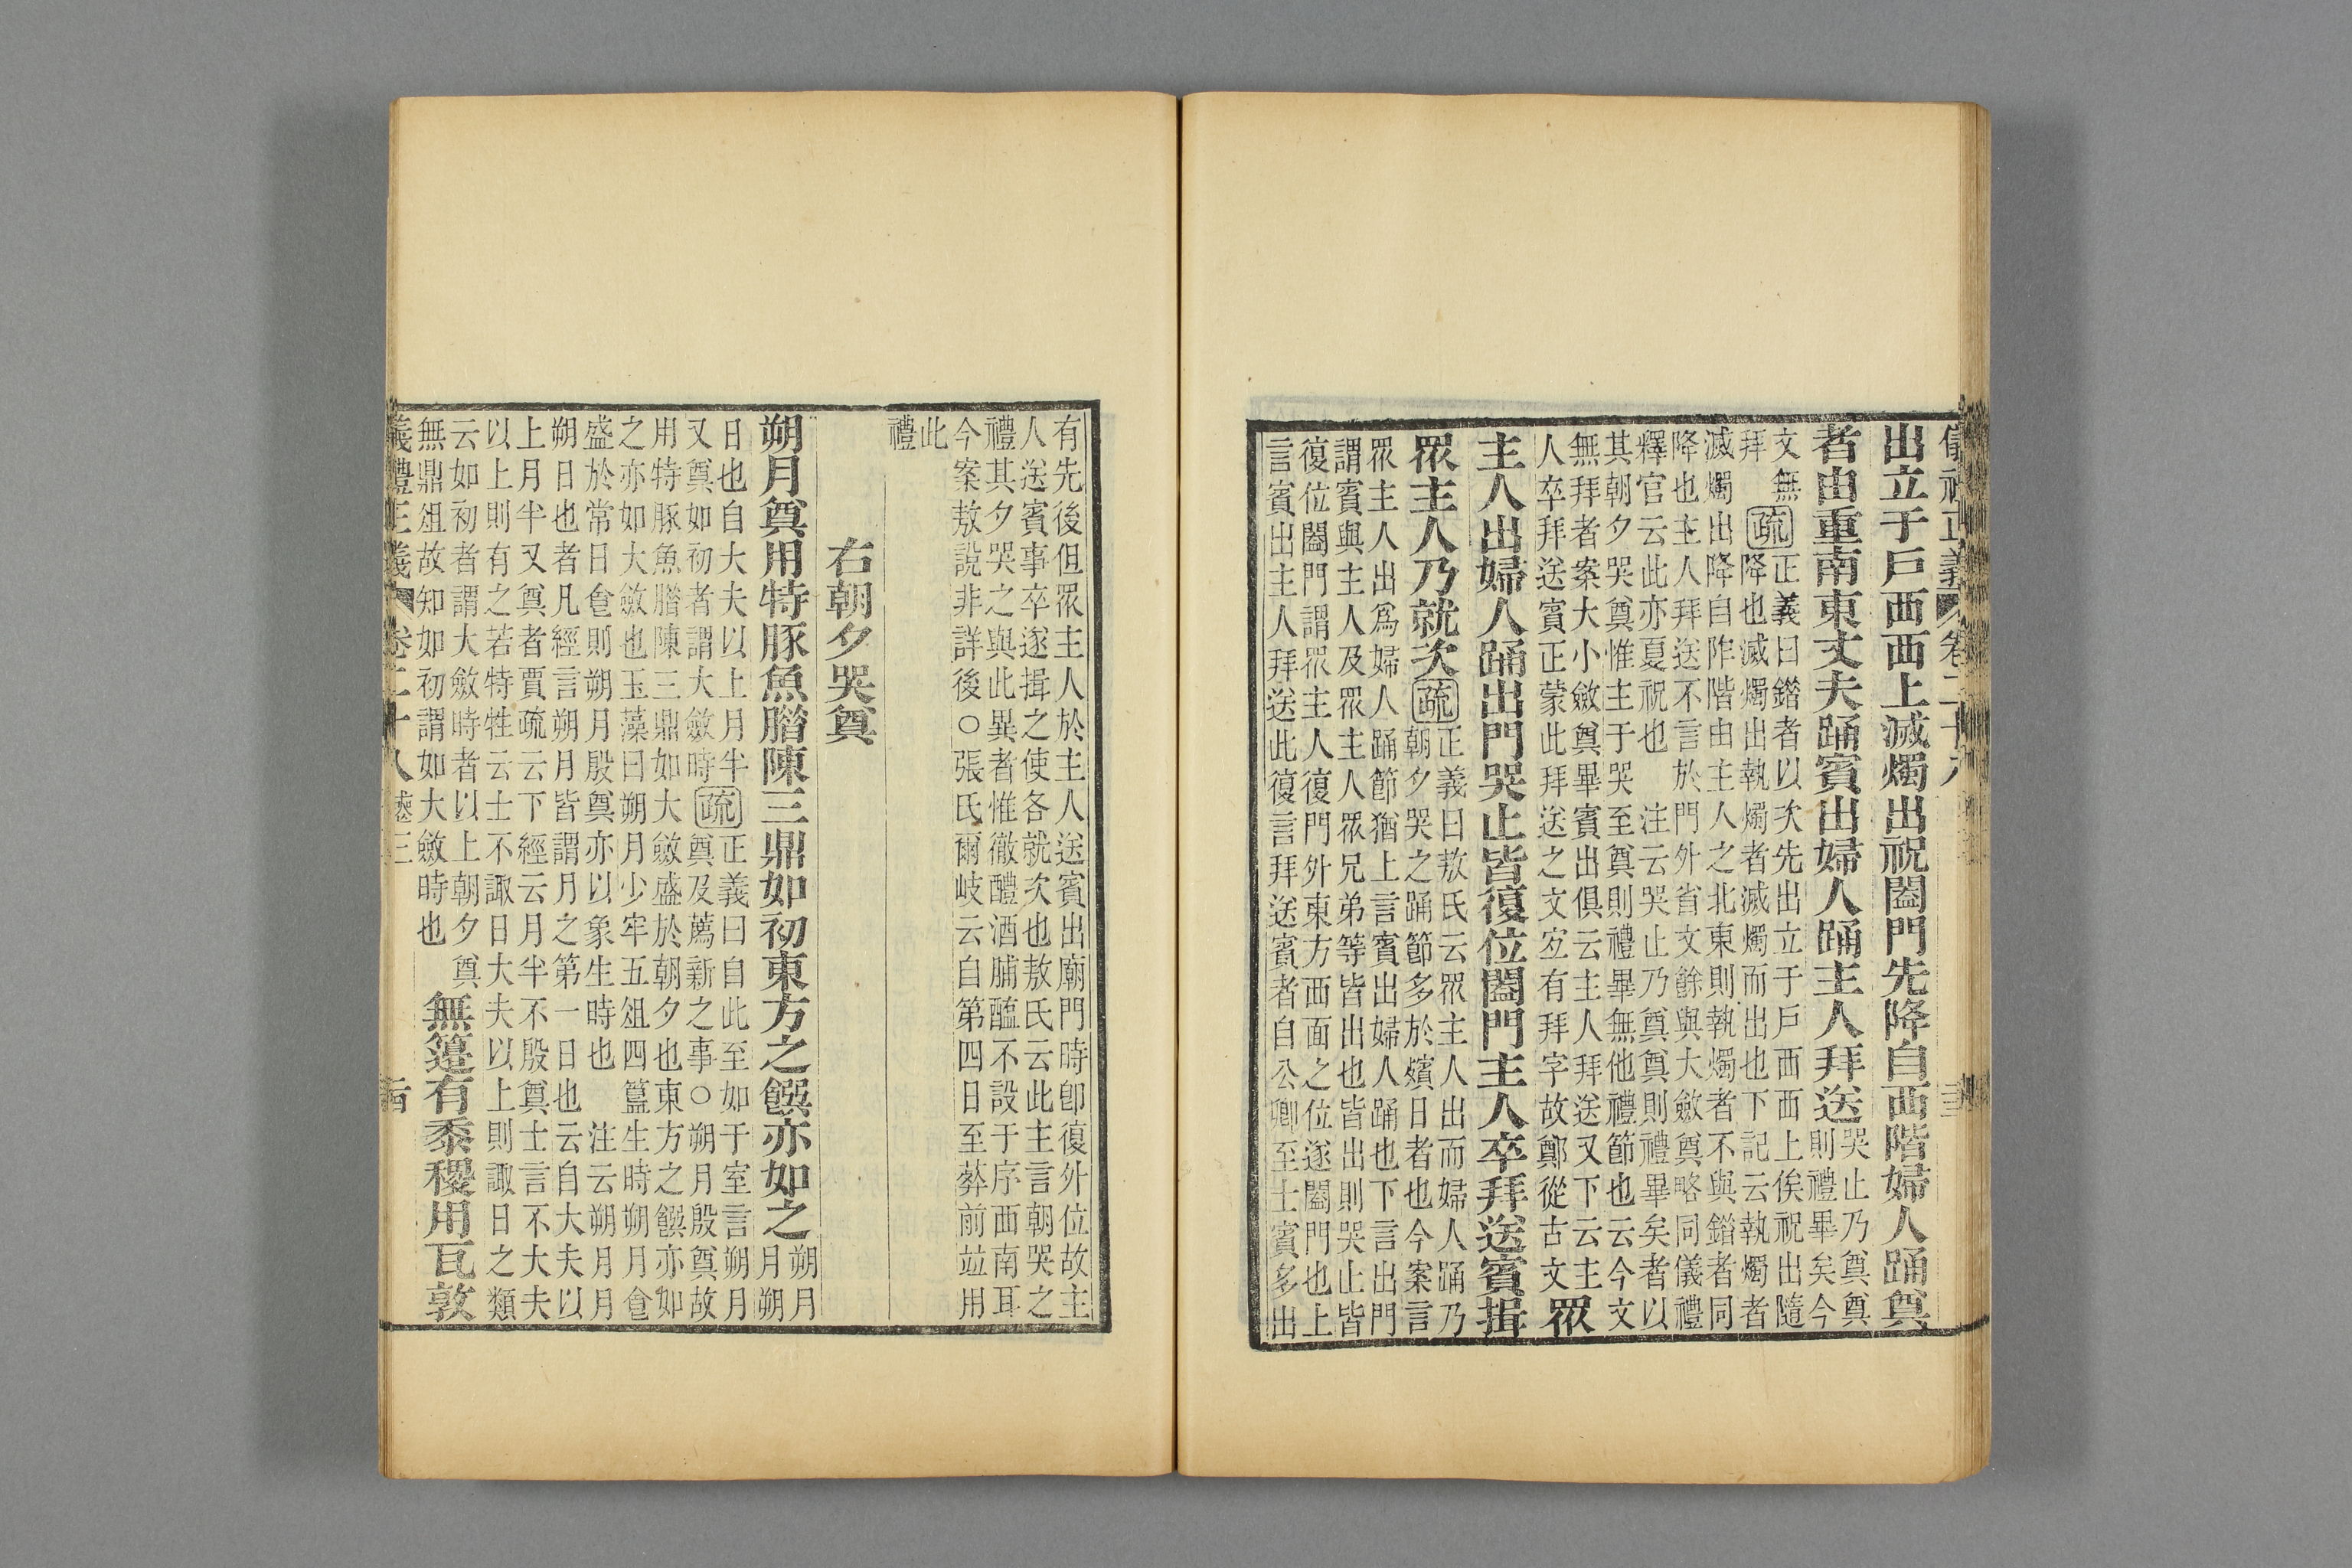 出立于戶西西上滅燭出祝闔門先降自西階婦人踊奠
者由重南東丈夫踊賓出婦人踊主人拜送
哭止乃奠奠
則禮畢矣今
文無
拜
疏
正義曰錯者以次先出立于戶西西上俟祝出隨
降也滅燭出執燭者滅燭而出也下記云執燭者
滅燭出降自阼階由主人之北東則執燭者不與錯者同
降也主人拜送不言於門外省文餘與大斂奠略同儀禮
釋官云此亦夏祝也 注云哭止乃奠奠則禮畢矣者以
其朝夕哭奠惟主于哭至奠則禮畢無他禮節也云今文
無拜者案大小斂奠畢賓出俱云主人拜送又下云主
人卒拜送賓正蒙此拜送之文宐有拜字故鄭從古文
眾
主人出婦人踊出門哭止皆復位闔門主人卒拜送賓揖
眾主人乃就次
疏
正義曰敖氏云眾主人出而婦人踊乃
朝夕哭之踊節多於殯日者也今案言
眾主人出爲婦人踊節猶上言賓出婦人踊也下言出門
謂賓與主人及眾主人眾兄弟等皆出也皆出則哭止皆
復位闔門謂眾主人復門外東方西面之位遂闔門也上
言賓出主人拜送此復言拜送賓者自公卿至士賓多出
有先後但眾主人於主人送賓出廟門時卽復外位故主
人送賓事卒遂揖之使各就次也敖氏云此主言朝哭之
禮其夕哭之與此異者惟徹醴酒脯醢不設于序西南耳
今案敖說非詳後○張氏爾岐云自第四日至葬前竝用
此
禮
右朝夕哭奠
朔月奠用特豚魚腊陳三鼎如初東方之饌亦如之
朔月
月朔
日也自大夫以上月半
又奠如初者謂大斂時
疏
正義曰自此至如于室言朔月
奠及薦新之事○朔月殷奠故
用特豚魚腊陳三鼎如大斂盛於朝夕也東方之饌亦如
之亦如大斂也玉藻曰朔月少牢五俎四簋生時朔月飡
盛於常日飡則朔月殷奠亦以象生時也 注云朔月月
朔日也者凡經言朔月皆謂月之第一日也云自大夫以
上月半又奠者賈疏云下經云月半不殷奠士言不大夫
以上則有之若特牲云士不諏日大夫以上則諏日之類
云如初者謂大斂時者以上朝夕奠
無鼎俎故知如初謂如大斂時也
無籩有黍稷用瓦敦